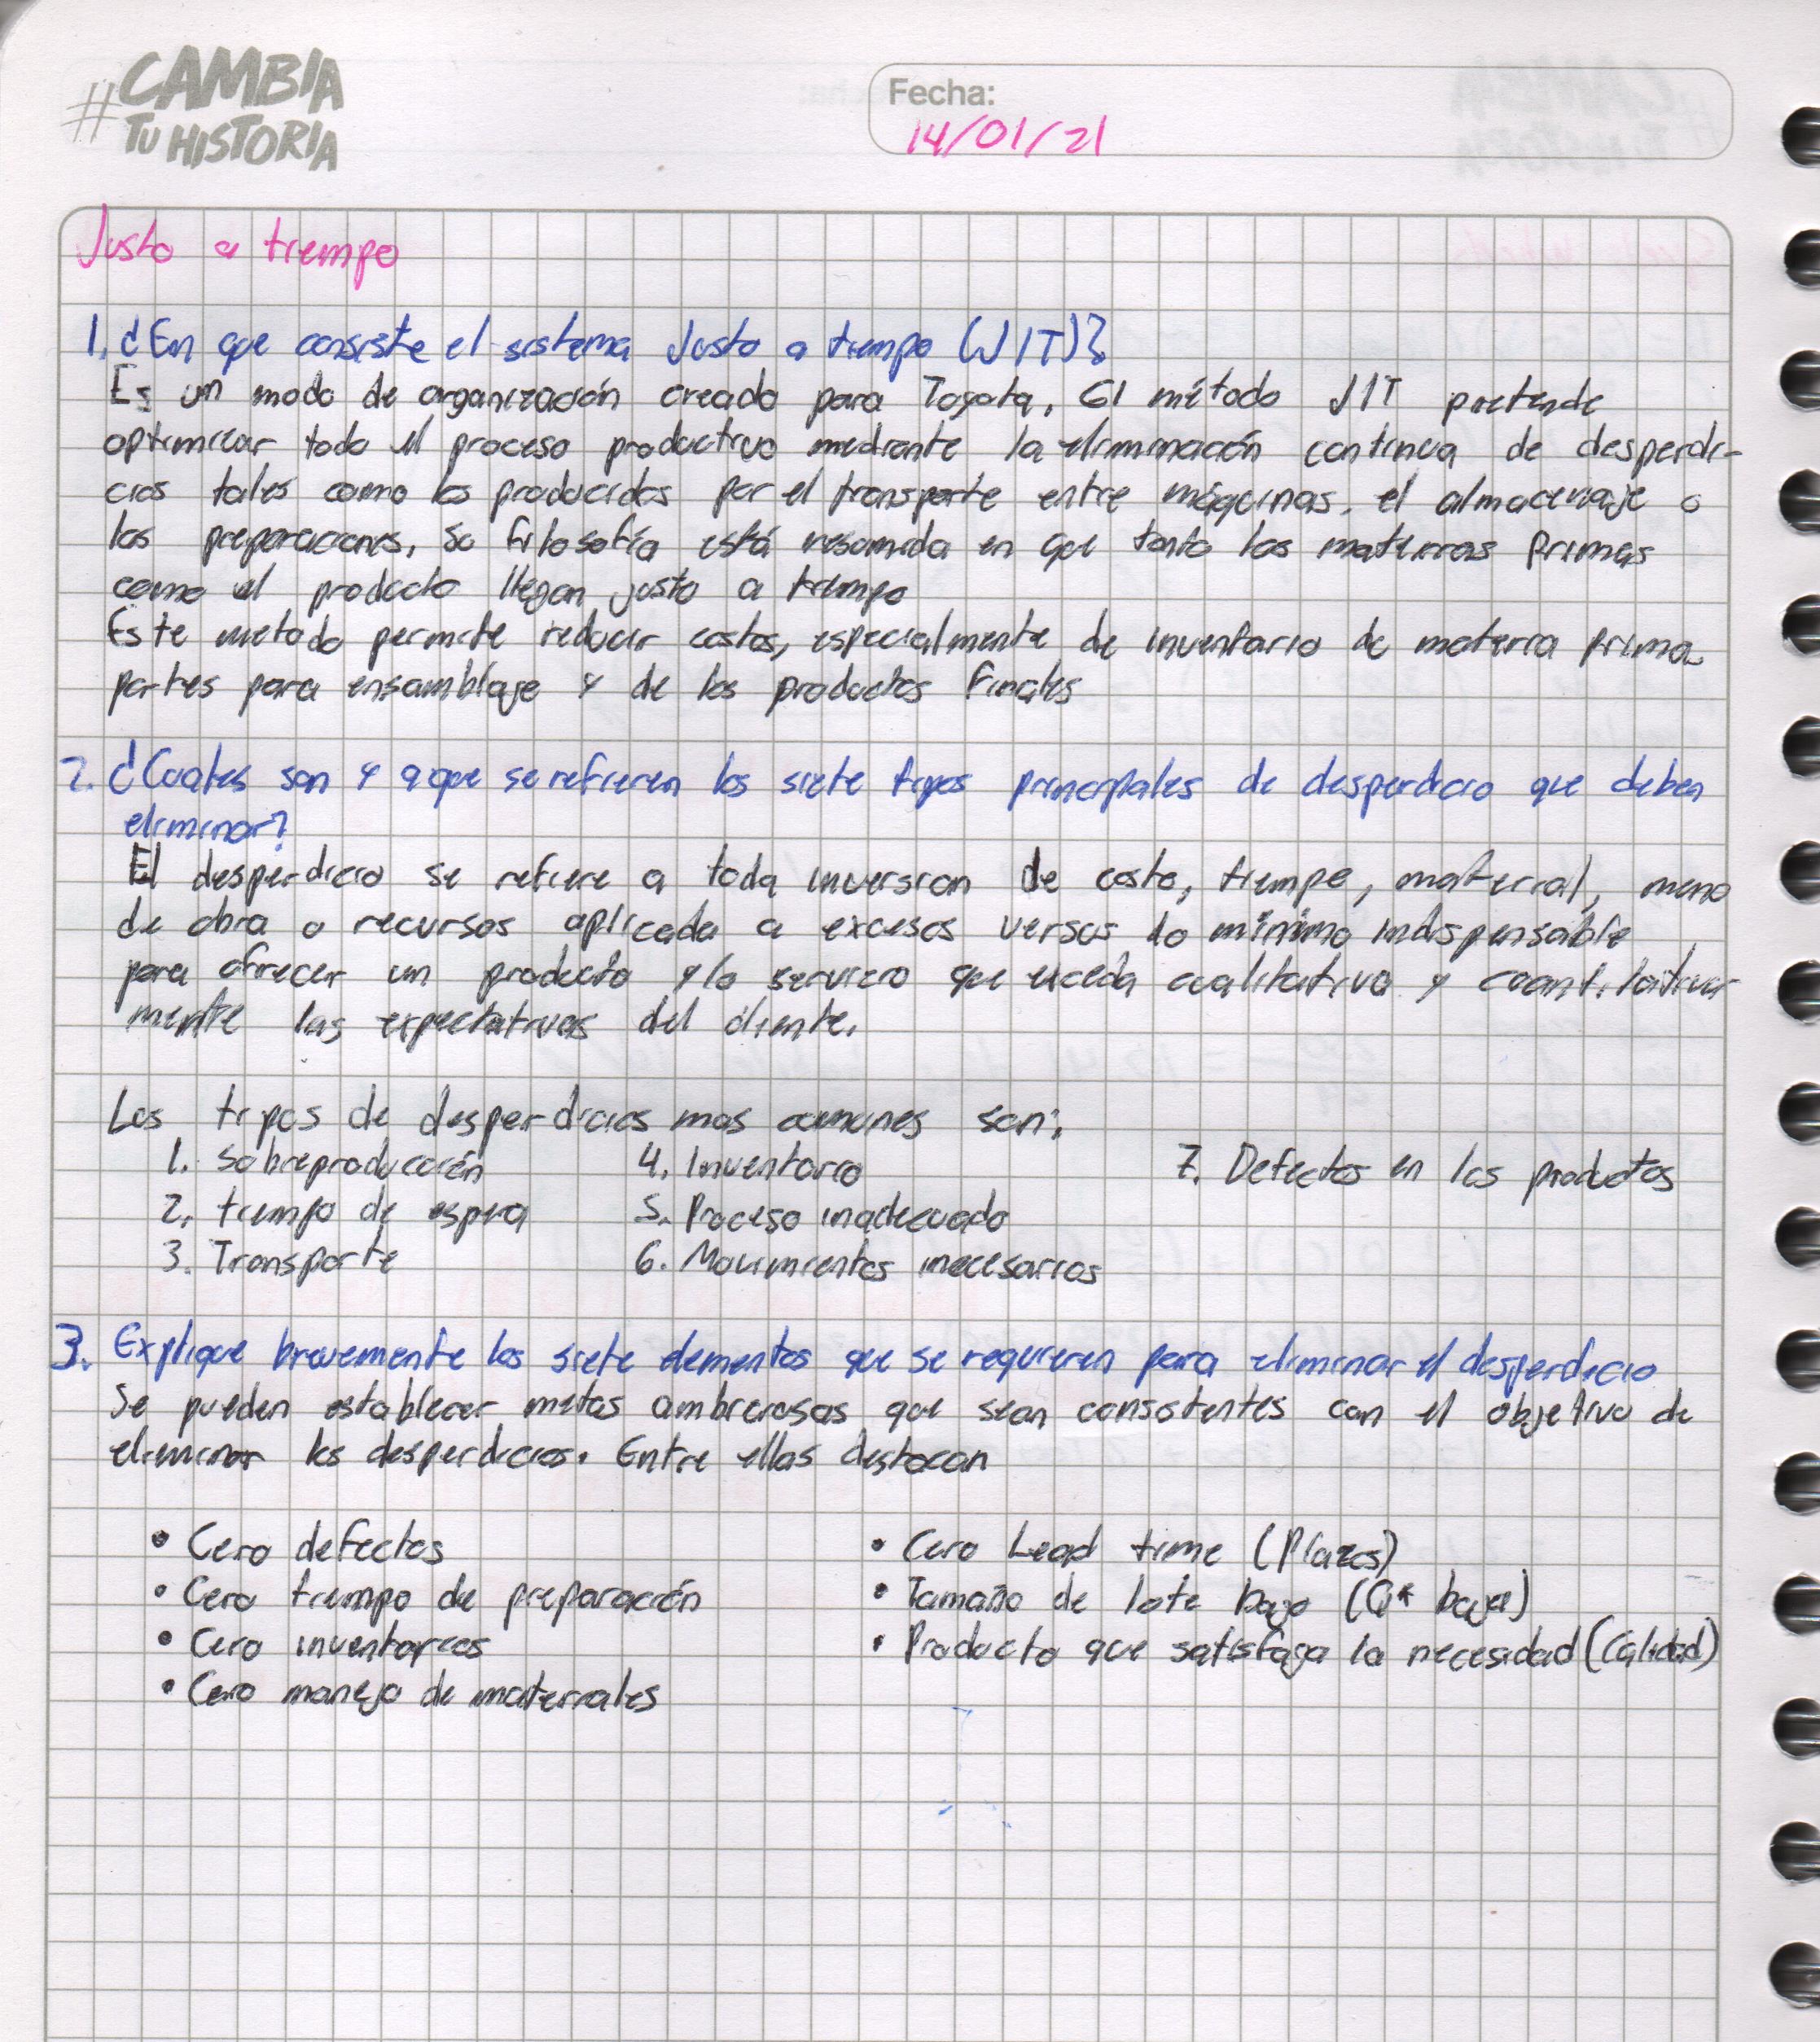 #CAMBIA
TU HISTORIA
Fecha:
14/01/21
Justo a tiempo
1. ¿En que consiste el sistema Justo a tiempo (JIT)?
Es un modo de organización creado para Toyota, El método JIT pretende
optimizar todo el proceso productivo mediante la eliminación continua de desperdi-
cios tales como los producidos por el transporte entre máquinas, el almacenaje o
las preparaciones, Su filosofía está resumida en que tanto las materias primas
como el producto llegan justo a tiempo
Este metodo permite reducir costos, especialmente de inventario de materia prima
partes para ensamblaje y de los productos finales
2. ¿Cuales son y a que se refieren los siete tipos principales de desperdicio que deben
eliminar?
El desperdicio se refiere a toda inversion de costo, tiempo, material, mano
de obra o recursos aplicada a excesos versus lo mínimo indispensable
para ofrecer un producto y/o servicio que exceda cualitativa y cuantitativa-
mente las expectativas del cliente.
Los tipos de desperdicios mas comunes son:
1. Sobreproducción 4. Inventario 7. Defectos en los productos
2. tiempo de espera 5. Proceso inadecuado
3. Transporte 6. Movimientos inecesarios
3. Explique brevemente los siete elementos que se requieren para eliminar el desperdicio
Se pueden establecer metas ambiciosas que sean consistentes con el objetivo de
eliminar los desperdicios. Entre ellas destacan
• Cero defectos • Cero Lead time (Plazos)
• Cero tiempo de preparación • Tamaño de lote bajo (Q* baja)
• Cero inventarios • Producto que satisfaga la necesidad (Calidad)
• Cero manejo de materiales